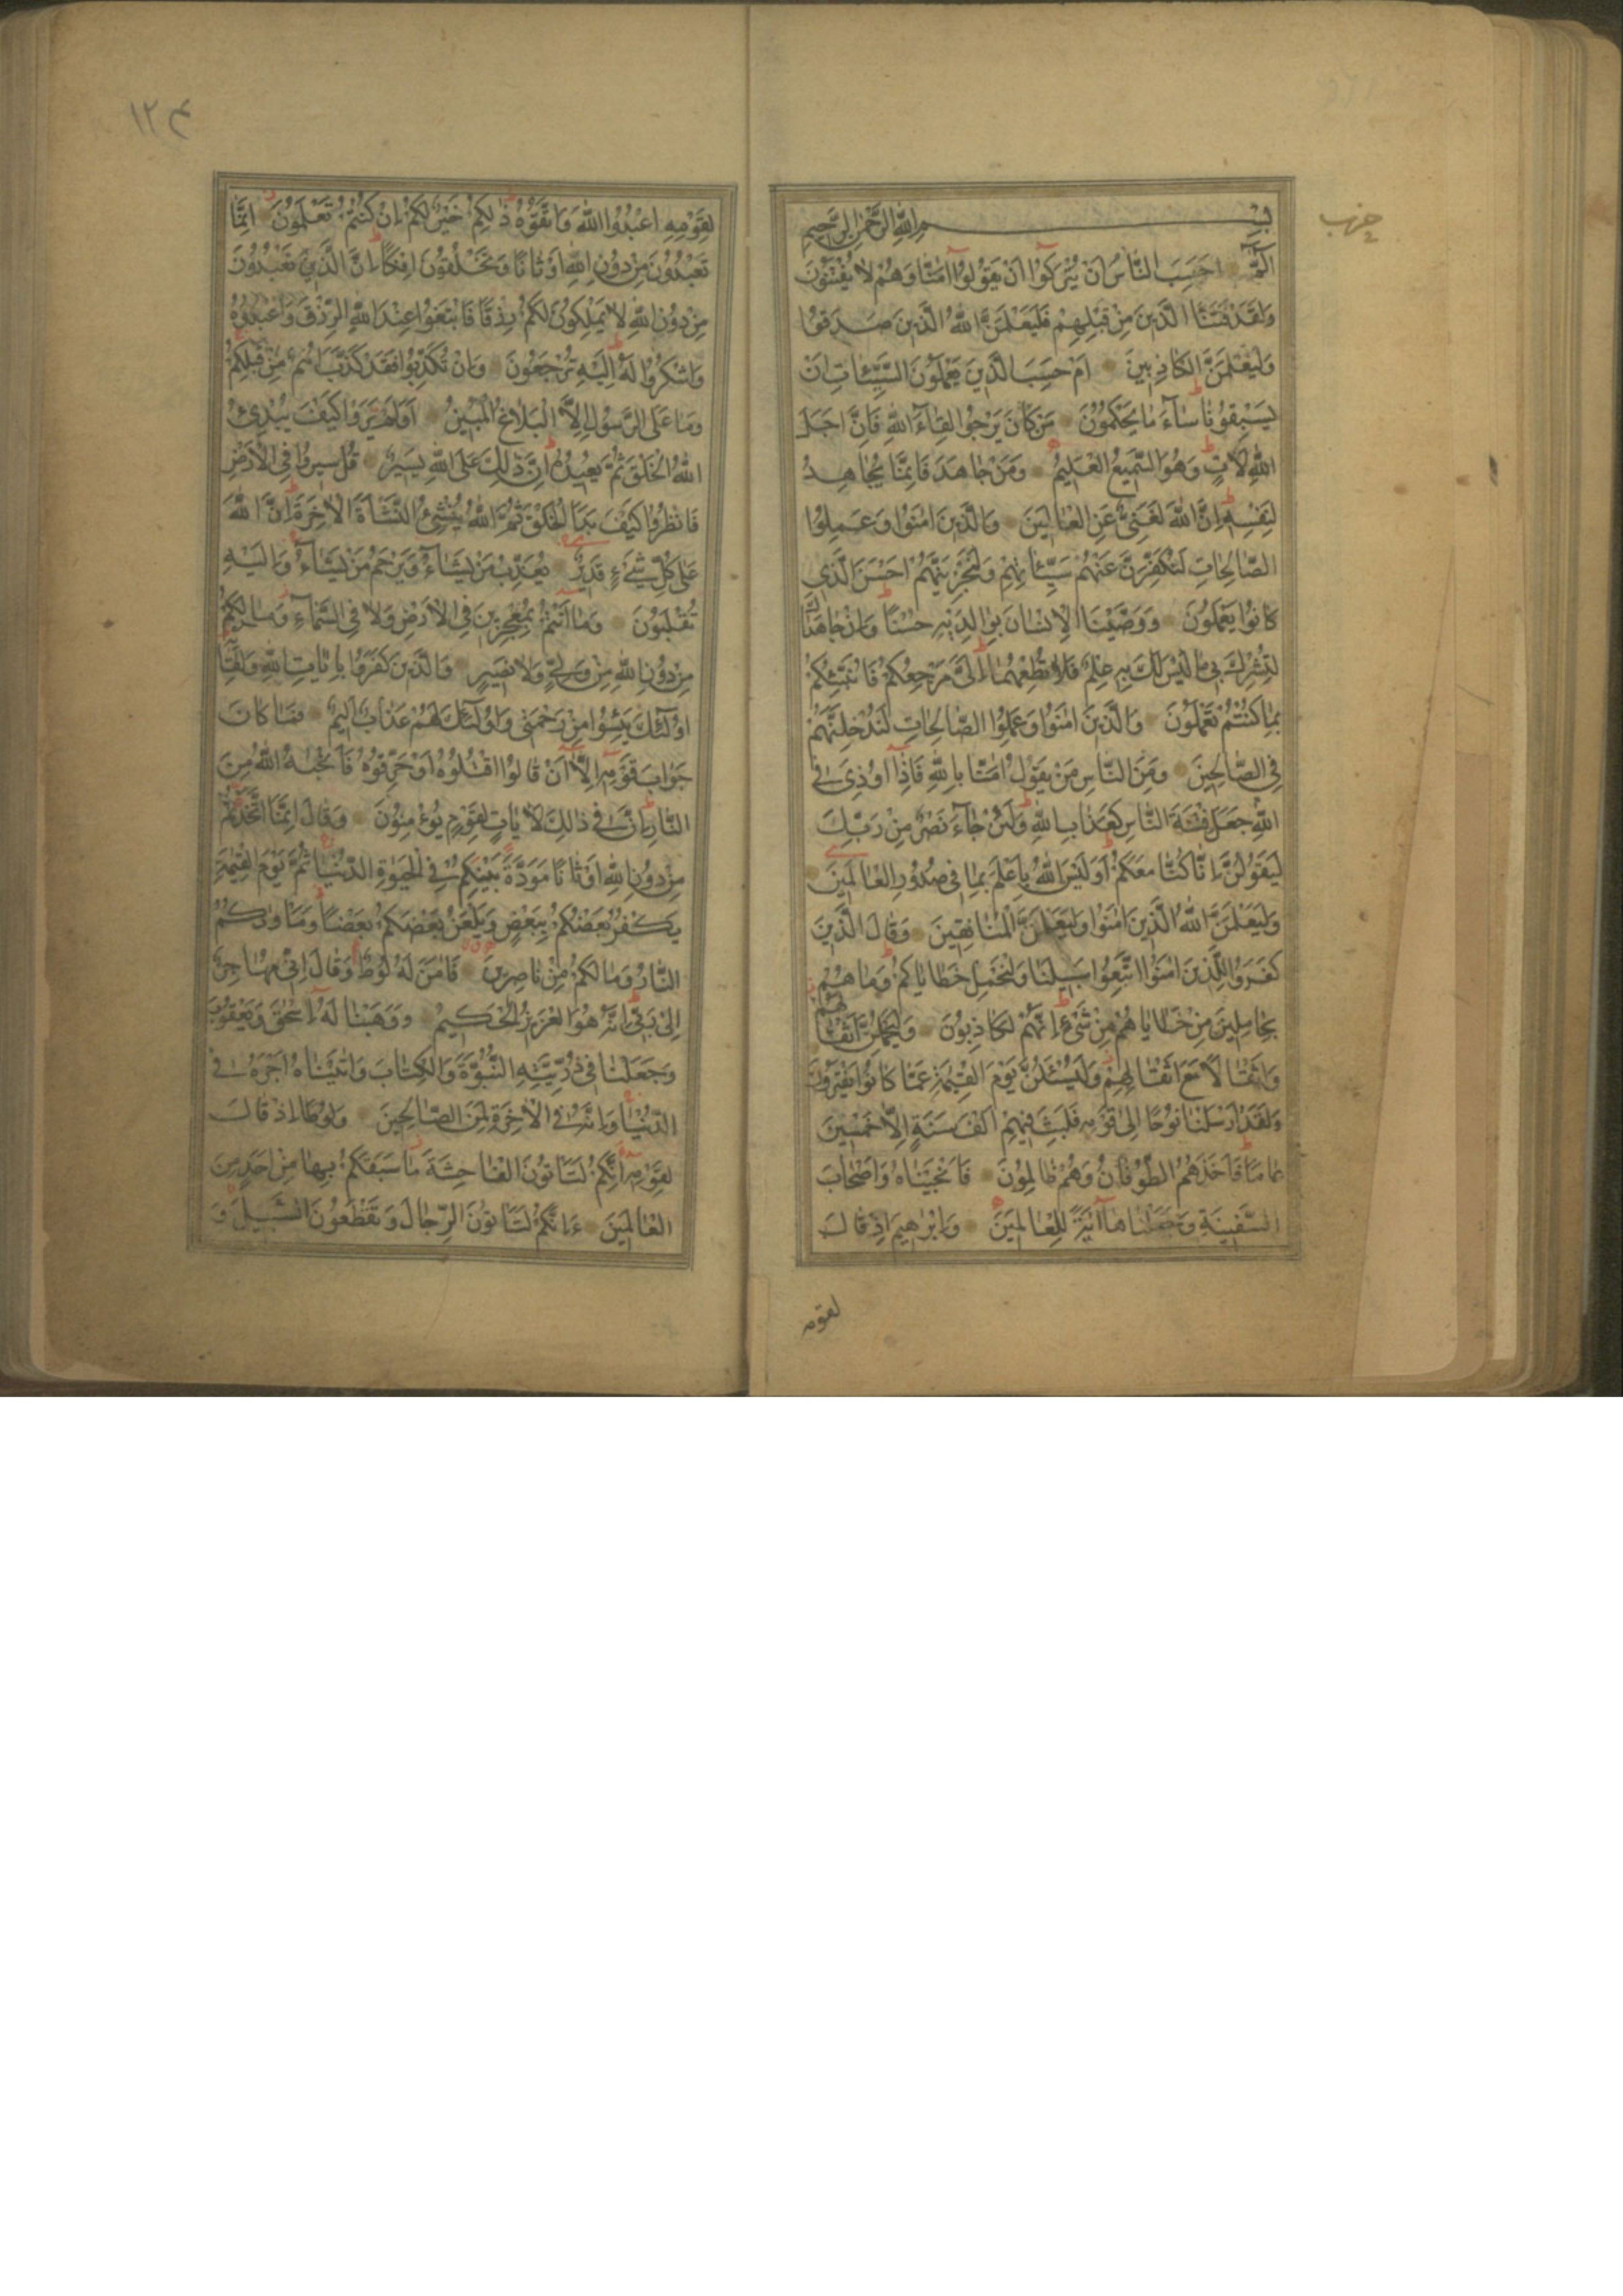 حزب
بِسْمِ اللهِ الرَّحْمٰنِ الرَّحِيمِ
الٓمٓ اَحَسِبَ النَّاسُ اَنْ يُتْرَكُوا اَنْ يَقُولُوا اٰمَنَّا وَهُمْ لَا يُفْتَنُونَ
وَلَقَدْ فَتَنَّا الَّذِينَ مِنْ قَبْلِهِمْ فَلَيَعْلَمَنَّ اللهُ الَّذِينَ صَدَقُوا
وَلَيَعْلَمَنَّ الْكَاذِبِينَ اَمْ حَسِبَ الَّذِينَ يَعْمَلُونَ السَّيِّئَاتِ اَنْ
يَسْبِقُونَا سَاءَ مَا يَحْكُمُونَ مَنْ كَانَ يَرْجُوا لِقَاءَ اللهِ فَاِنَّ اَجَلَ
اللهِ لَاٰتٍ وَهُوَ السَّمِيعُ الْعَلِيمُ وَمَنْ جَاهَدَ فَاِنَّمَا يُجَاهِدُ
لِنَفْسِهِ اِنَّ اللهَ لَغَنِيٌّ عَنِ الْعَالَمِينَ وَالَّذِينَ اٰمَنُوا وَعَمِلُوا
الصَّالِحَاتِ لَنُكَفِّرَنَّ عَنْهُمْ سَيِّئَاتِهِمْ وَلَنَجْزِيَنَّهُمْ اَحْسَنَ الَّذِي
كَانُوا يَعْمَلُونَ وَوَصَّيْنَا الْاِنْسَانَ بِوَالِدَيْهِ حُسْنًا وَاِنْ جَاهَدَاكَ
لِتُشْرِكَ بِي مَا لَيْسَ لَكَ بِهِ عِلْمٌ فَلَا تُطِعْهُمَا اِلَيَّ مَرْجِعُكُمْ فَاُنَبِّئُكُمْ
بِمَا كُنْتُمْ تَعْمَلُونَ وَالَّذِينَ اٰمَنُوا وَعَمِلُوا الصَّالِحَاتِ لَنُدْخِلَنَّهُمْ
فِي الصَّالِحِينَ وَمِنَ النَّاسِ مَنْ يَقُولُ اٰمَنَّا بِاللهِ فَاِذَا اُوذِيَ فِي
اللهِ جَعَلَ فِتْنَةَ النَّاسِ كَعَذَابِ اللهِ وَلَئِنْ جَاءَ نَصْرٌ مِنْ رَبِّكَ
لَيَقُولُنَّ اِنَّا كُنَّا مَعَكُمْ اَوَلَيْسَ اللهُ بِاَعْلَمَ بِمَا فِي صُدُورِ الْعَالَمِينَ
وَلَيَعْلَمَنَّ اللهُ الَّذِينَ اٰمَنُوا وَلَيَعْلَمَنَّ الْمُنَافِقِينَ وَقَالَ الَّذِينَ
كَفَرُوا لِلَّذِينَ اٰمَنُوا اتَّبِعُوا سَبِيلَنَا وَلْنَحْمِلْ خَطَايَاكُمْ وَمَا هُمْ
بِحَامِلِينَ مِنْ خَطَايَاهُمْ مِنْ شَيْءٍ اِنَّهُمْ لَكَاذِبُونَ وَلَيَحْمِلُنَّ اَثْقَالَهُمْ
وَاَثْقَالًا مَعَ اَثْقَالِهِمْ وَلَيُسْئَلُنَّ يَوْمَ الْقِيٰمَةِ عَمَّا كَانُوا يَفْتَرُونَ
وَلَقَدْ اَرْسَلْنَا نُوحًا اِلٰى قَوْمِهِ فَلَبِثَ فِيهِمْ اَلْفَ سَنَةٍ اِلَّا خَمْسِينَ
عَامًا فَاَخَذَهُمُ الطُّوفَانُ وَهُمْ ظَالِمُونَ فَاَنْجَيْنَاهُ وَاَصْحَابَ
السَّفِينَةِ وَجَعَلْنَاهَا اٰيَةً لِلْعَالَمِينَ وَاِبْرٰهِيمَ اِذْ قَالَ
لقومه
١٢٤
لِقَوْمِهِ اعْبُدُوا اللهَ وَاتَّقُوهُ ذٰلِكُمْ خَيْرٌ لَكُمْ اِنْ كُنْتُمْ تَعْلَمُونَ اِنَّمَا
تَعْبُدُونَ مِنْ دُونِ اللهِ اَوْثَانًا وَتَخْلُقُونَ اِفْكًا اِنَّ الَّذِينَ تَعْبُدُونَ
مِنْ دُونِ اللهِ لَا يَمْلِكُونَ لَكُمْ رِزْقًا فَابْتَغُوا عِنْدَ اللهِ الرِّزْقَ وَاعْبُدُوهُ
وَاشْكُرُوا لَهُ اِلَيْهِ تُرْجَعُونَ وَاِنْ تُكَذِّبُوا فَقَدْ كَذَّبَ اُمَمٌ مِنْ قَبْلِكُمْ
وَمَا عَلَى الرَّسُولِ اِلَّا الْبَلَاغُ الْمُبِينُ اَوَلَمْ يَرَوْا كَيْفَ يُبْدِئُ
اللهُ الْخَلْقَ ثُمَّ يُعِيدُهُ اِنَّ ذٰلِكَ عَلَى اللهِ يَسِيرٌ قُلْ سِيرُوا فِي الْاَرْضِ
فَانْظُرُوا كَيْفَ بَدَاَ الْخَلْقَ ثُمَّ اللهُ يُنْشِئُ النَّشْاَةَ الْاٰخِرَةَ اِنَّ اللهَ
عَلٰى كُلِّ شَيْءٍ قَدِيرٌ يُعَذِّبُ مَنْ يَشَاءُ وَيَرْحَمُ مَنْ يَشَاءُ وَاِلَيْهِ
تُقْلَبُونَ وَمَا اَنْتُمْ بِمُعْجِزِينَ فِي الْاَرْضِ وَلَا فِي السَّمَاءِ وَمَا لَكُمْ
مِنْ دُونِ اللهِ مِنْ وَلِيٍّ وَلَا نَصِيرٍ وَالَّذِينَ كَفَرُوا بِاٰيَاتِ اللهِ وَلِقَائِهِ
اُولٰئِكَ يَئِسُوا مِنْ رَحْمَتِي وَاُولٰئِكَ لَهُمْ عَذَابٌ اَلِيمٌ فَمَا كَانَ
جَوَابَ قَوْمِهِ اِلَّا اَنْ قَالُوا اقْتُلُوهُ اَوْ حَرِّقُوهُ فَاَنْجٰهُ اللهُ مِنَ
النَّارِ اِنَّ فِي ذٰلِكَ لَاٰيَاتٍ لِقَوْمٍ يُؤْمِنُونَ وَقَالَ اِنَّمَا اتَّخَذْتُمْ
مِنْ دُونِ اللهِ اَوْثَانًا مَوَدَّةَ بَيْنِكُمْ فِي الْحَيٰوةِ الدُّنْيَا ثُمَّ يَوْمَ الْقِيٰمَةِ
يَكْفُرُ بَعْضُكُمْ بِبَعْضٍ وَيَلْعَنُ بَعْضُكُمْ بَعْضًا وَمَاْوٰىكُمُ
النَّارُ وَمَا لَكُمْ مِنْ نَاصِرِينَ فَاٰمَنَ لَهُ لُوطٌ وَقَالَ اِنِّي مُهَاجِرٌ
اِلٰى رَبِّي اِنَّهُ هُوَ الْعَزِيزُ الْحَكِيمُ وَوَهَبْنَا لَهُ اِسْحٰقَ وَيَعْقُوبَ
وَجَعَلْنَا فِي ذُرِّيَّتِهِ النُّبُوَّةَ وَالْكِتَابَ وَاٰتَيْنَاهُ اَجْرَهُ فِي
الدُّنْيَا وَاِنَّهُ فِي الْاٰخِرَةِ لَمِنَ الصَّالِحِينَ وَلُوطًا اِذْ قَالَ
لِقَوْمِهِ اِنَّكُمْ لَتَاْتُونَ الْفَاحِشَةَ مَا سَبَقَكُمْ بِهَا مِنْ اَحَدٍ مِنَ
الْعَالَمِينَ ءَاِنَّكُمْ لَتَاْتُونَ الرِّجَالَ وَتَقْطَعُونَ السَّبِيلَ وَ